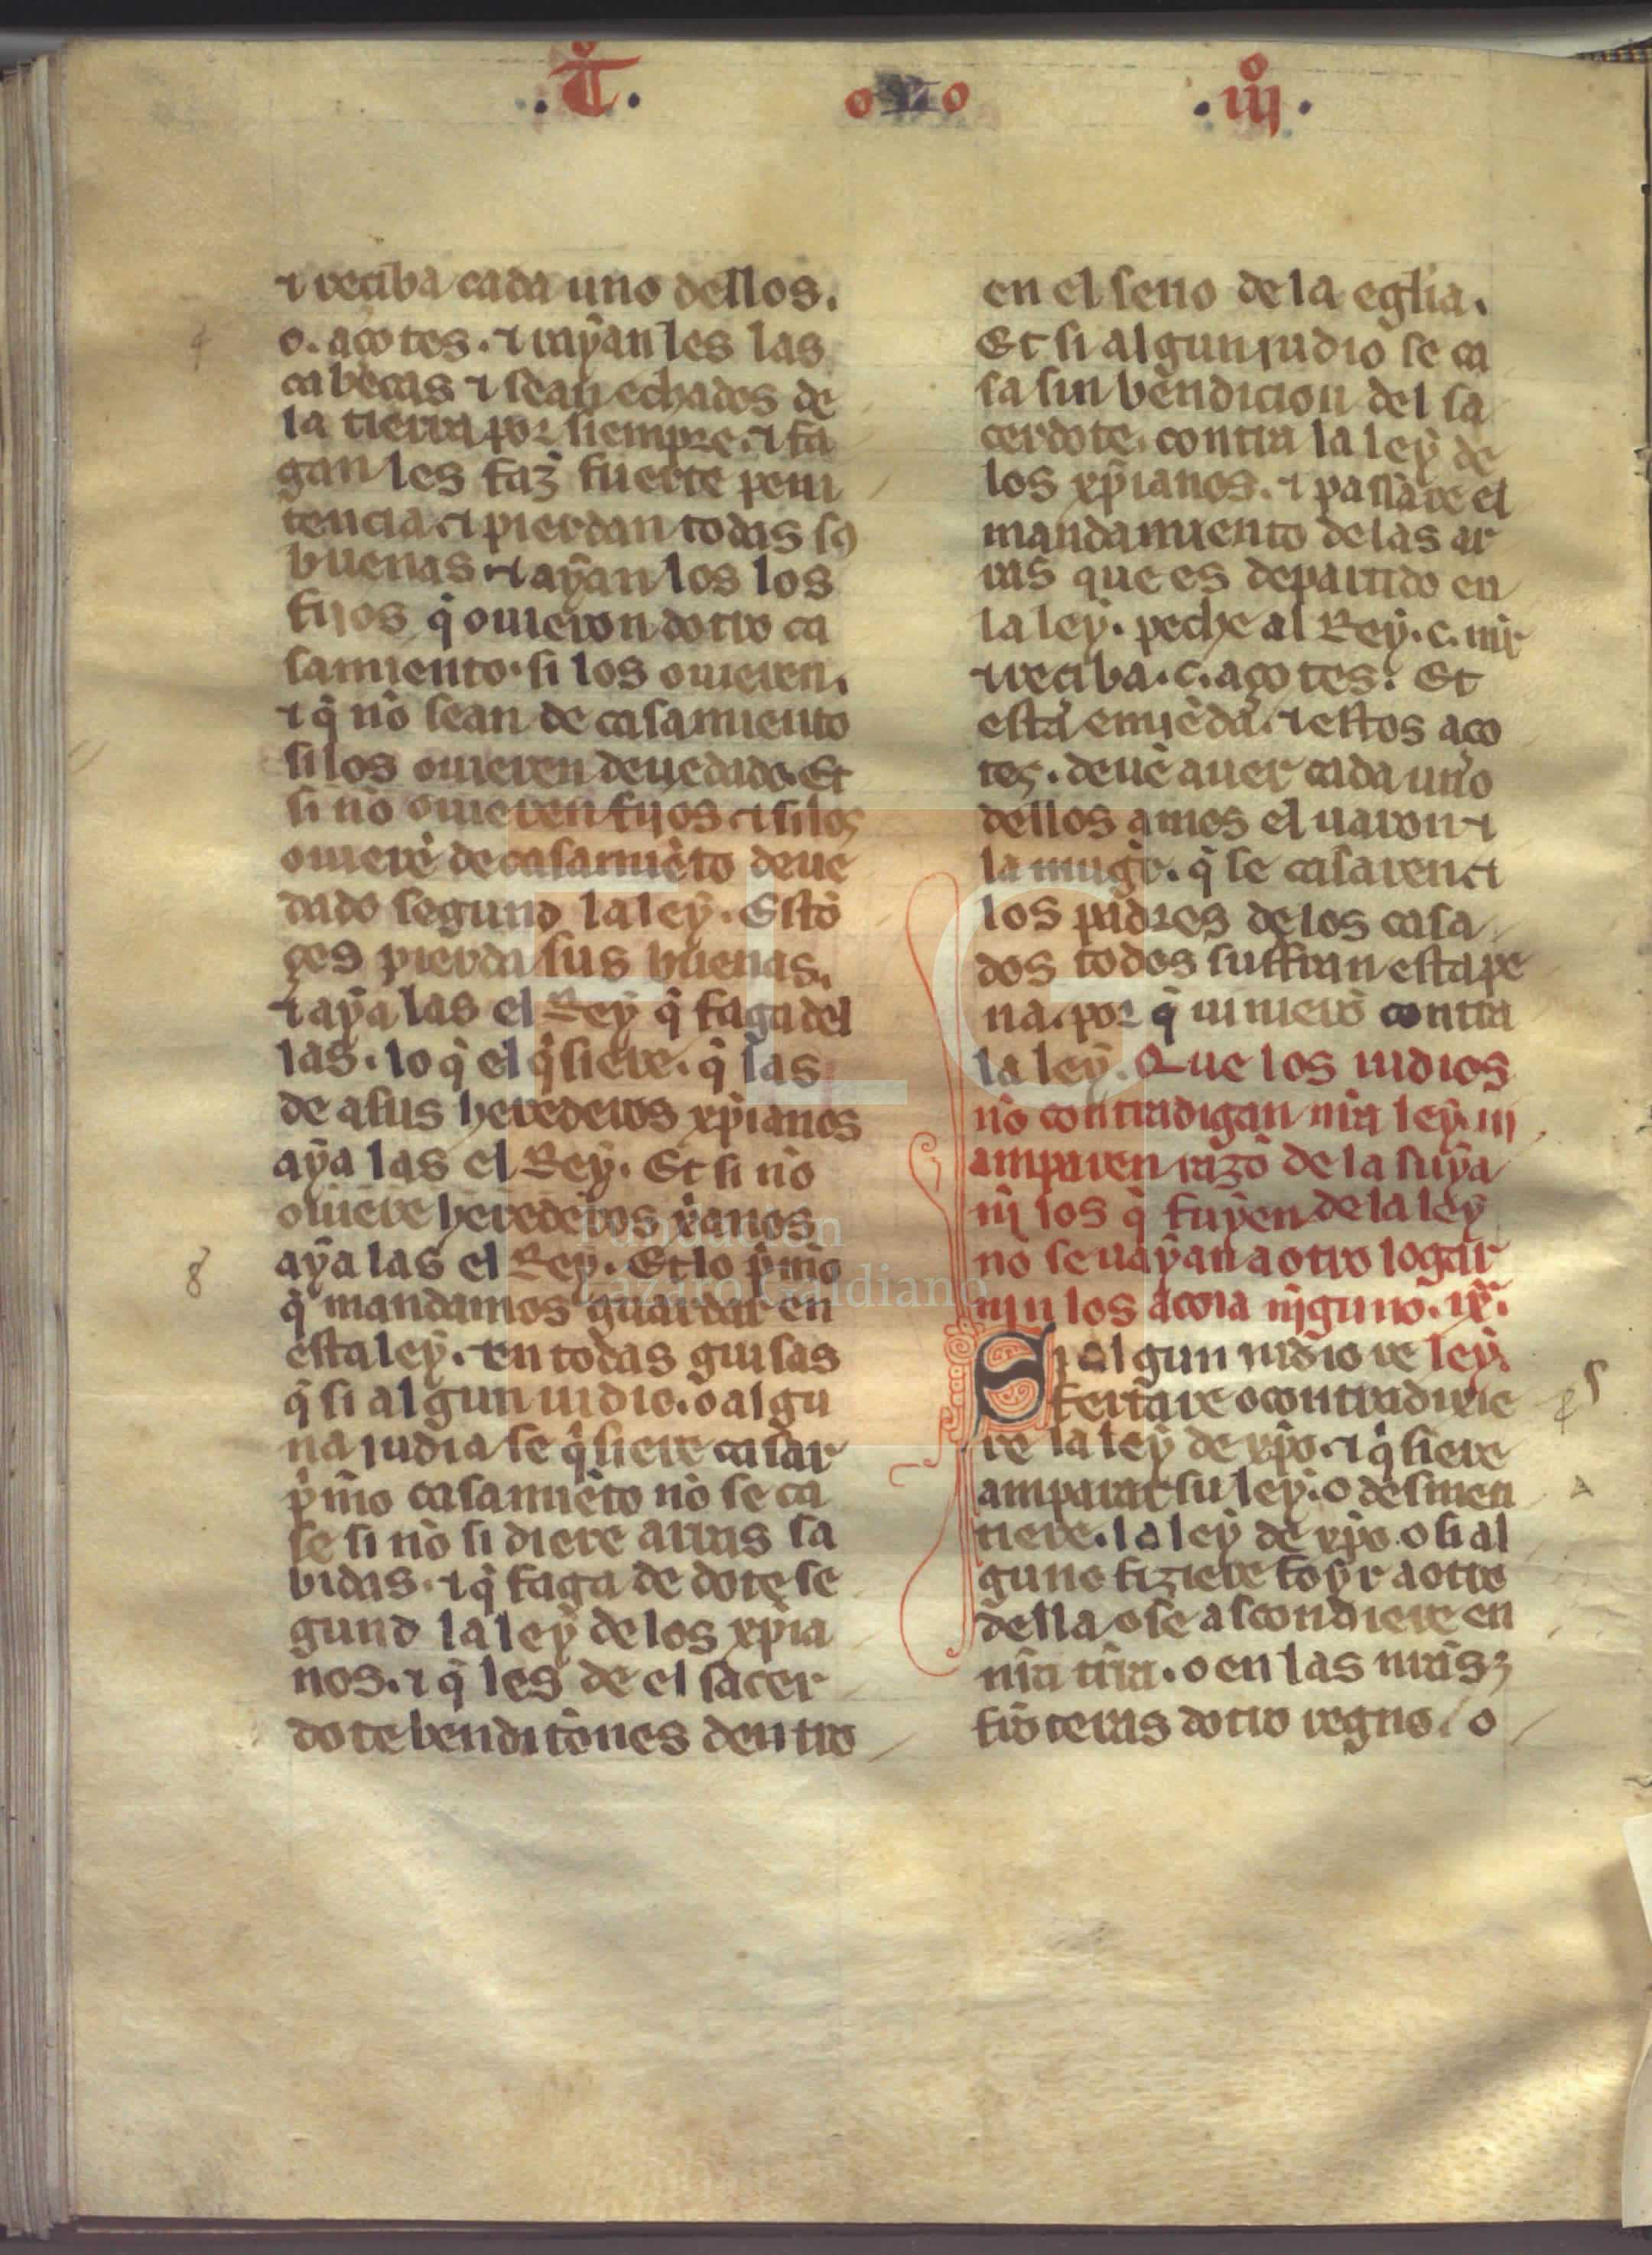 .T͠º. oııo .iijº.
⁊ reciba cada uno dellos.
c. aço tes. ⁊ rayan les las
cabeças ⁊ sean echados de
la tierra por siempre. ⁊ fa
gan les faz fuerte peni
tencia. ⁊ pierdan todas sꝯ
buenas ⁊ ayan los los
fijos q̃ ouieron dotro ca
samiento. si los ouieren.
⁊ q̃ nõ sean de casamiento
si los ouieren deuedado. Et
si nõ ouieren fijos. ⁊ si los
ouierẽ de casamiẽto deue
dado segund la ley. Estõ
çes pierda sus buenas.
⁊ aya las el Rey q̃ faga del
las. lo q̃ el q̃siere. q̃ las
de asus herederos xp̃ianos
aya las el Rey. Et si nõ
ouiere herederos xp̃anos
aya las el Rey. Et lo p̃mo
q̃ mandamos guardar en
esta ley. en todas guisas
q̃ si algun iudio. o algu
na judia se q̃siere casar
p̃mo casamiẽto nõ se ca
se si nõ si diere arras sa
bidas. ⁊ q̃ faga de dote se
gund la ley de los xp̃ia
nos. ⁊ q̃ les de el sacer
dote benditiones dentro
en el seno de la eglia.
Et si algun judio se ca
sa sin bendicion del sa
cerdote. contra la ley de
los xp̃ianos. ⁊ passare el
mandamiento delas ar
ras que es departido en
la ley. peche al Rey. c. mr̃
⁊ reciba. c. aço tes. Et
esta emiẽda. ⁊ estos aço
tes. deue auer cada uno
dellos amos el uaron ⁊
la mug̃r. q̃ se casaren. ⁊
los padres de los casa
dos todos suffran esta pe
na. por q̃ uinierõ contra
la ley. Que los iudios
nõ contradigan nr̃a ley. ni
amparen razõ de la suya
nj los q̃ fuyen de la ley
no se uayan a otro logar
nin los acoia njguno. ix̃.
Si algun iudio de ley
tertare o contradixie
re la ley de xp̃o. ⁊ q̃siere
amparar su ley. o desmen
tiere. la ley de xp̃o. o si al
guno fiziere foyr a otro
della o se ascondiere en
nr̃a tr̃ra. o en las nr̃as
frõteras dotro regno. o
8
A
Fundación
Lázaro Galdiano
FLG